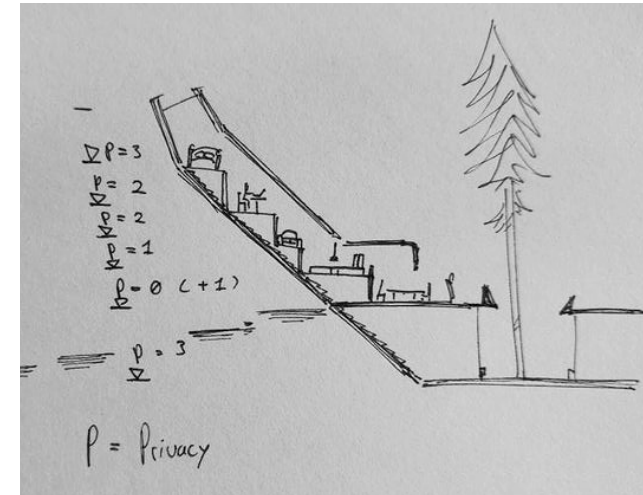 P=3
P=2
P=2
P=1
P=0 (+1)
P=3
P = Privacy